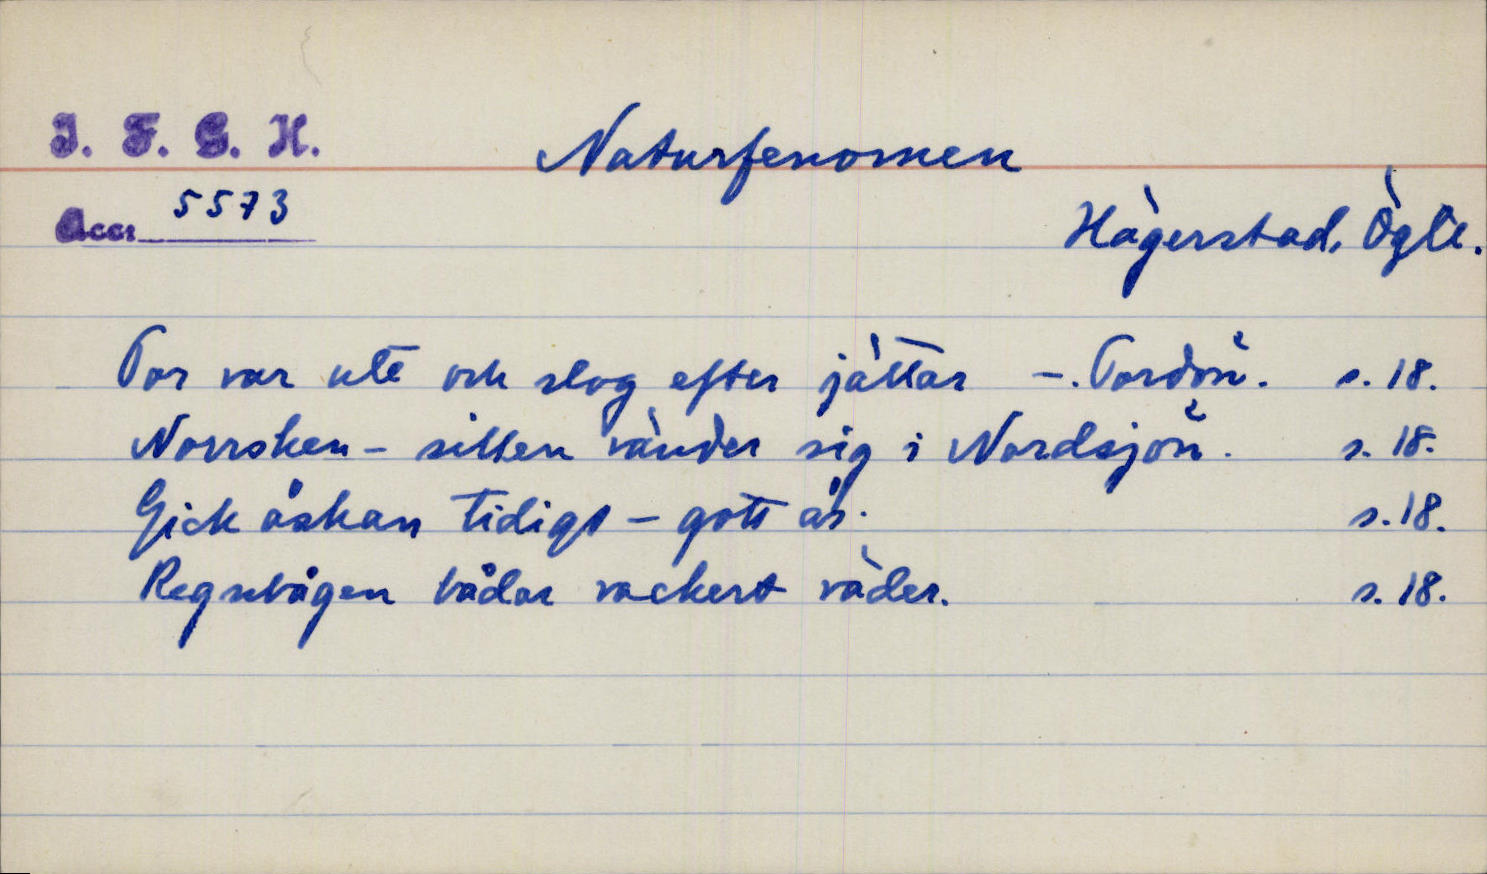 I. F. G. H.
Naturfenomen
Accr 5573
Hägerstad, Ögtl.
Tor var ute och slog efter jättar –. Tordön. s. 18.
Norrsken – sillen vänder sig i Nordsjön. s. 18.
Gick åskan tidigt – gott år. s. 18.
Regnbågen bådar vackert väder. s. 18.